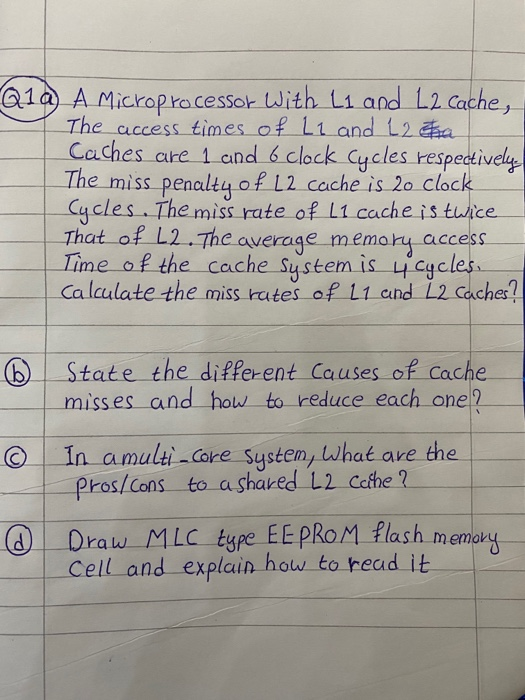 Q1a A Microprocessor With L1 and L2 Cache,
The access times of L1 and L2
Caches are 1 and 6 clock cycles respectively.
The miss penalty of L2 cache is 20 clock
Cycles. The miss rate of L1 cache is twice
That of L2. The average memory access
Time of the cache system is 4 cycles.
Calculate the miss rates of L1 and L2 caches?
b State the different Causes of Cache
misses and how to reduce each one?
c In a multi-core system, What are the
Pros/cons to a shared L2 Cache?
d Draw MLC type EEPROM flash memory
Cell and explain how to read it